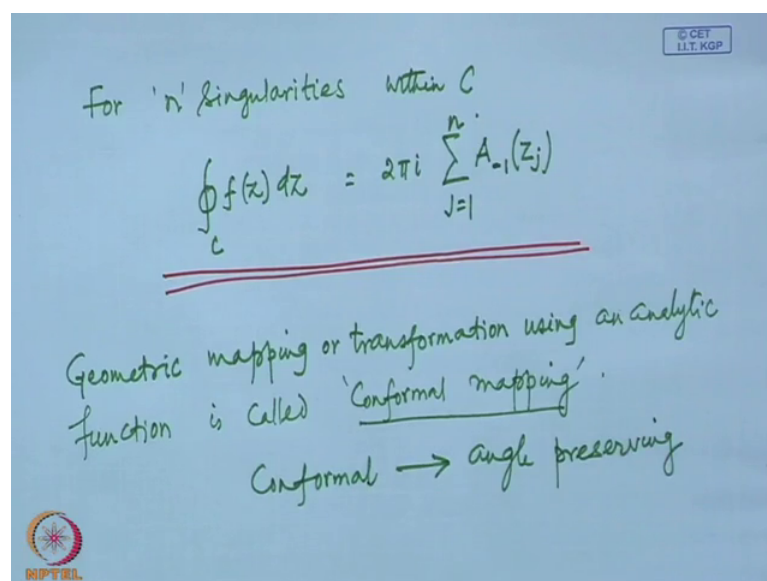 © CET
I.I.T. KGP
For 'n' Singularities within C
∮_C f(z) dz = 2πi ∑_{j=1}^{n} A_{-1}(z_j)
Geometric mapping or transformation using an analytic
function is called 'Conformal mapping'.
Conformal → angle preserving
NPTEL